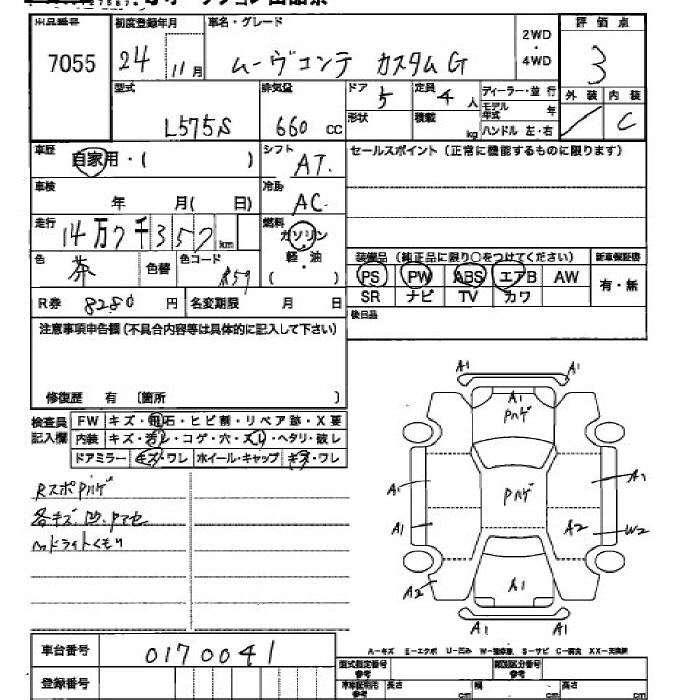 出品番号 初度登録年月 車名・グレード 2WD・4WD 評価点
7055 24年 11月 ムーヴコンテ カスタムG 3
型式 排気量 ドア 5 定員 4人 ディーラー・並行 外装 内装
L575S 660cc 形状 積載 kg モデル年式 年 C
ハンドル 左・右
車歴 自家用・( ) シフト AT. セールスポイント (正常に機能するものに限ります)
車検 年 月( 日) 冷房 AC
走行 14万7千357km 燃料 ガソリン・軽・油 ( )
色 茶 色替 色コード 装備品 (純正品に限り○をつけてください) 新車保証書
PS PW ABS エアB AW 有・無
SR ナビ TV カワ
R券 8280円 名変期限 月 日 後日品
注意事項申告欄 (不具合内容等は具体的に記入して下さい)
修復歴 有 〔箇所 〕
検査員記入欄 FW キズ・飛石・ヒビ割・リペア跡・X要
内装 キズ・汚レ・コゲ・穴・スレ・ヘタリ・破レ
ドアミラー キズ・ワレ ホイール・キャップ キズ・ワレ
RスポPハゲ
各キズ.凹.Pアセ
ヘッドライトくもり
A1 A1
A1
Pハゲ
Pハゲ
A1 A1
A1 A2 W2
A2 A1
A1 A1
A-キズ E-エクボ U-凹み W-補修跡 S-サビ C-腐食 XX-交換済
車台番号 0170041
登録番号
型式指定番号 参考 類別区分番号 参考
車検証明用 参考 長さ cm 幅 cm 高さ cm